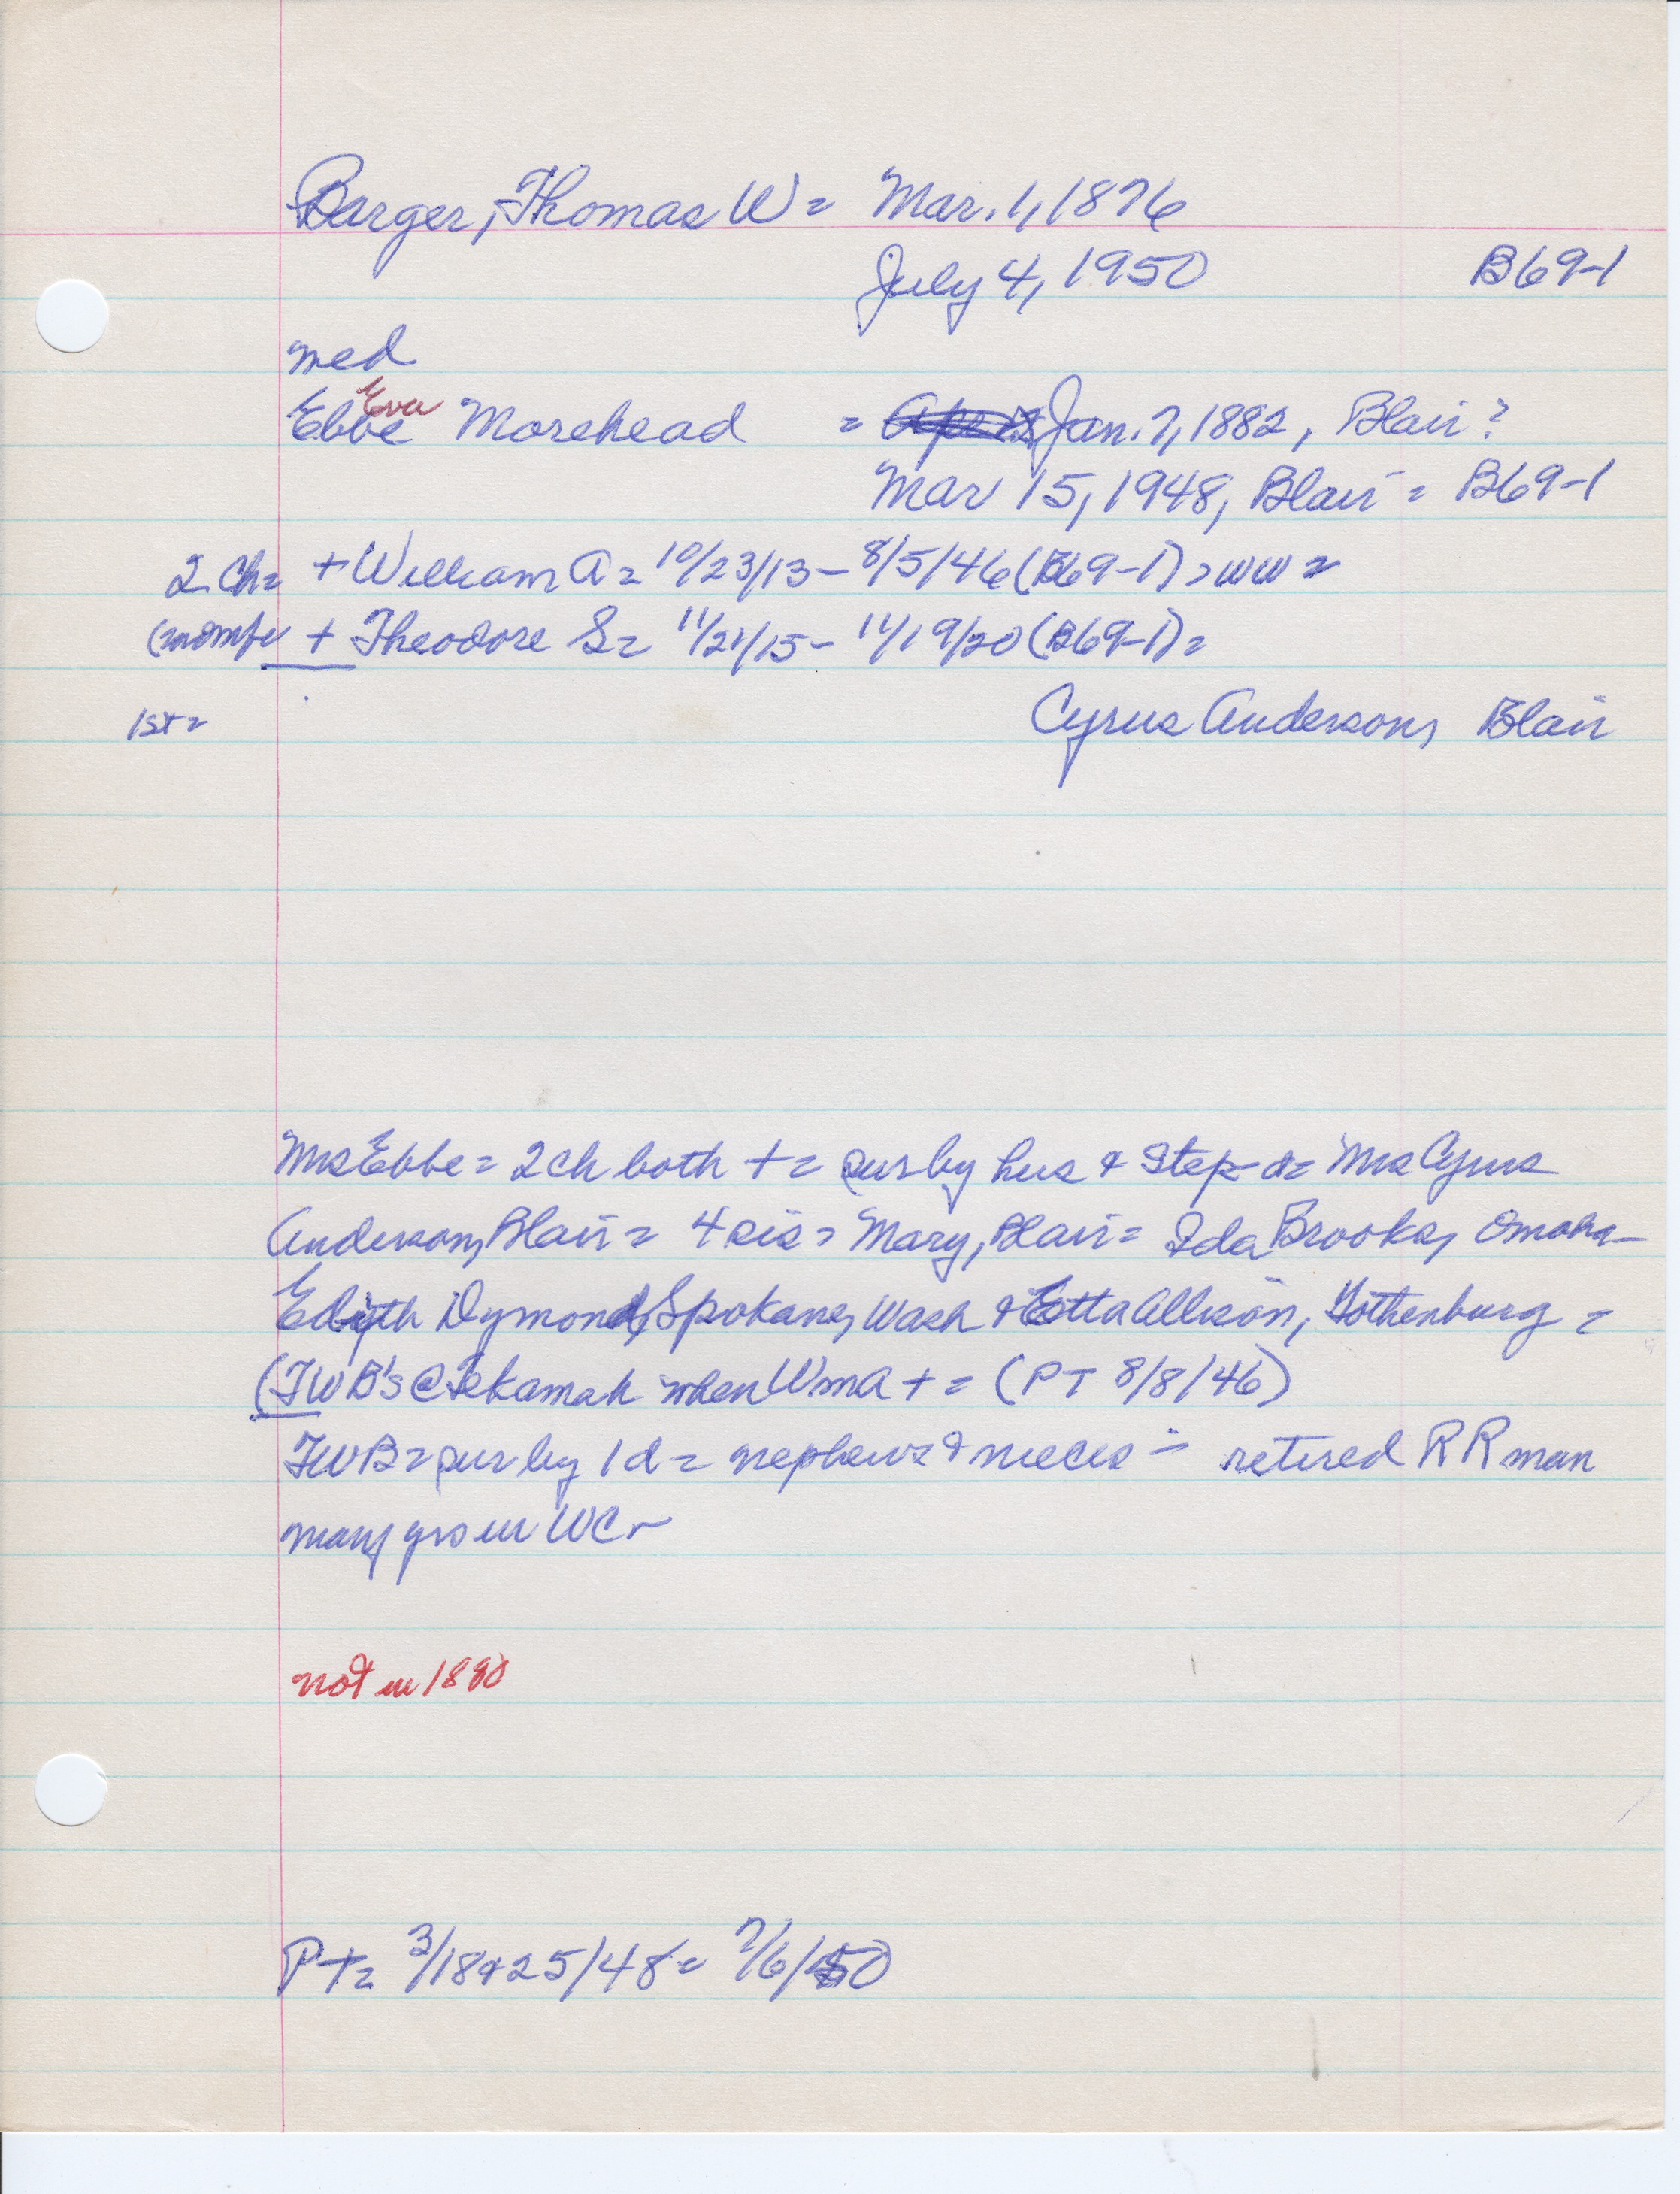 Barger, Thomas W = Mar. 1, 1876
July 4, 1950 B69-1
med
Eva
Ebbe Morehead = Jan. 7, 1882, Blair?
Mar 15, 1948, Blair = B69-1
2 Ch= + William A = 10/23/13 - 8/5/46 (B69-1) = WW =
+ Theodore S = 11/21/15 - 11/19/20 (B69-1) =
1st = Cyrus Anderson, Blair
Mrs Ebbe = 2 ch both + = sur by hus & step-d = Mrs Cyrus
Anderson, Blair = 4 sis = Mary, Blair = Ida Brooks, Omaha -
Edyth Dymond, Spokane, Wash & Etta Allison, Gothenburg =
(TWB's @ Tekamah when Wm A + = (PT 8/8/46)
TWB = sur by 1 d = nephews & nieces - retired RR man
many yrs in WC -
not in 1880
PT = 3/18 & 25/48 = 7/6/50